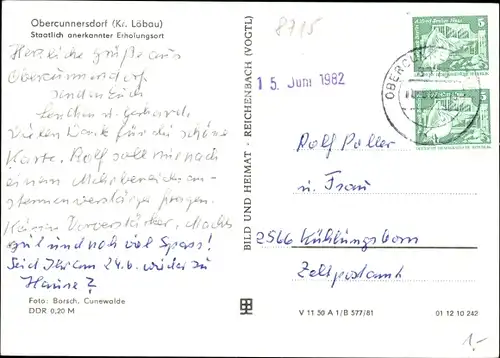 Obercunnersdorf (Kr. Löbau)
Staatlich anerkannter Erholungsort
Herzliche Grüße aus
Obercunnersdorf
senden Euch
u. Gerhard.
Vielen Dank für die schöne
Karte. Rolf soll mir nach
einem
fragen.
Macht's
gut und noch viel Spass!
Seid Ihr am 24.6. wieder zu
Hause?
Foto: Borsch, Cunewalde
DDR 0,20 M
BILD UND HEIMAT · REICHENBACH (VOGTL)
8715
15. Juni 1982
5
5
OBERCUN
Rolf Paller
u. Frau
2566 Kühlungsborn
Zeltpostamt
V 11 50 A 1/B 577/81
01 12 10 242
1,-